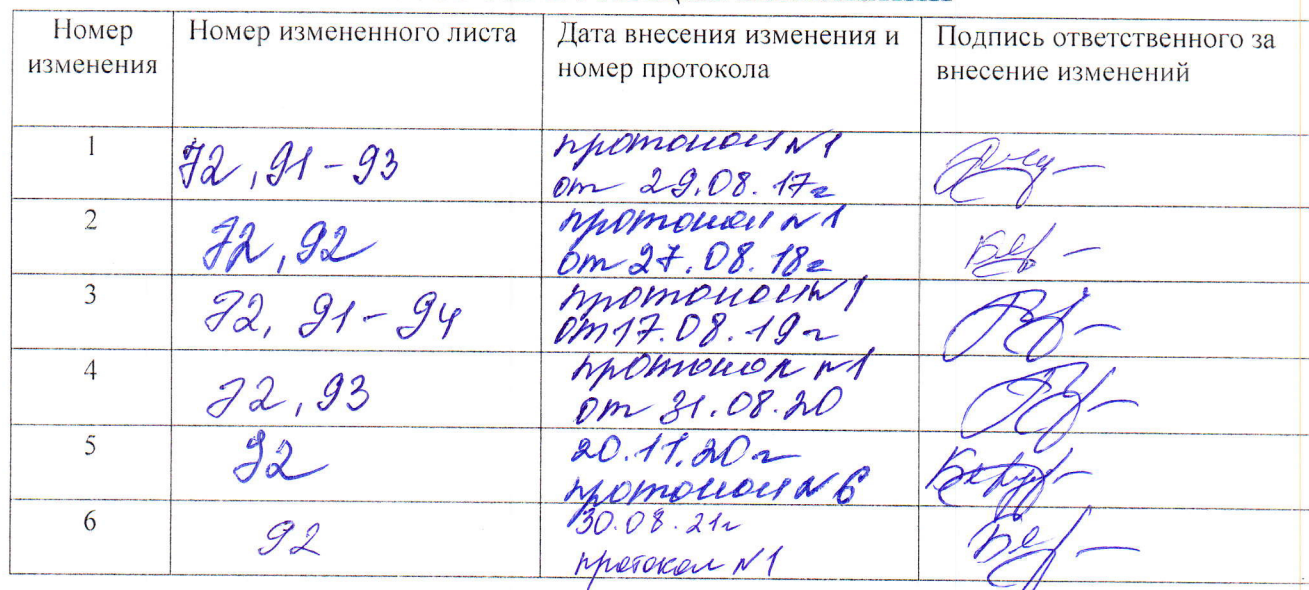 Номер изменения
Номер измененного листа
Дата внесения изменения и номер протокола
Подпись ответственного за внесение изменений
1
72, 91-93
протокол №1
от 29.08.17г
2
72, 92
протокол №1
от 27.08.18г
3
72, 91-94
протокол №1
от 17.08.19г
4
72, 93
протокол №1
от 31.08.20
5
92
20.11.20г
протокол №6
6
92
30.08.21г
протокол №1